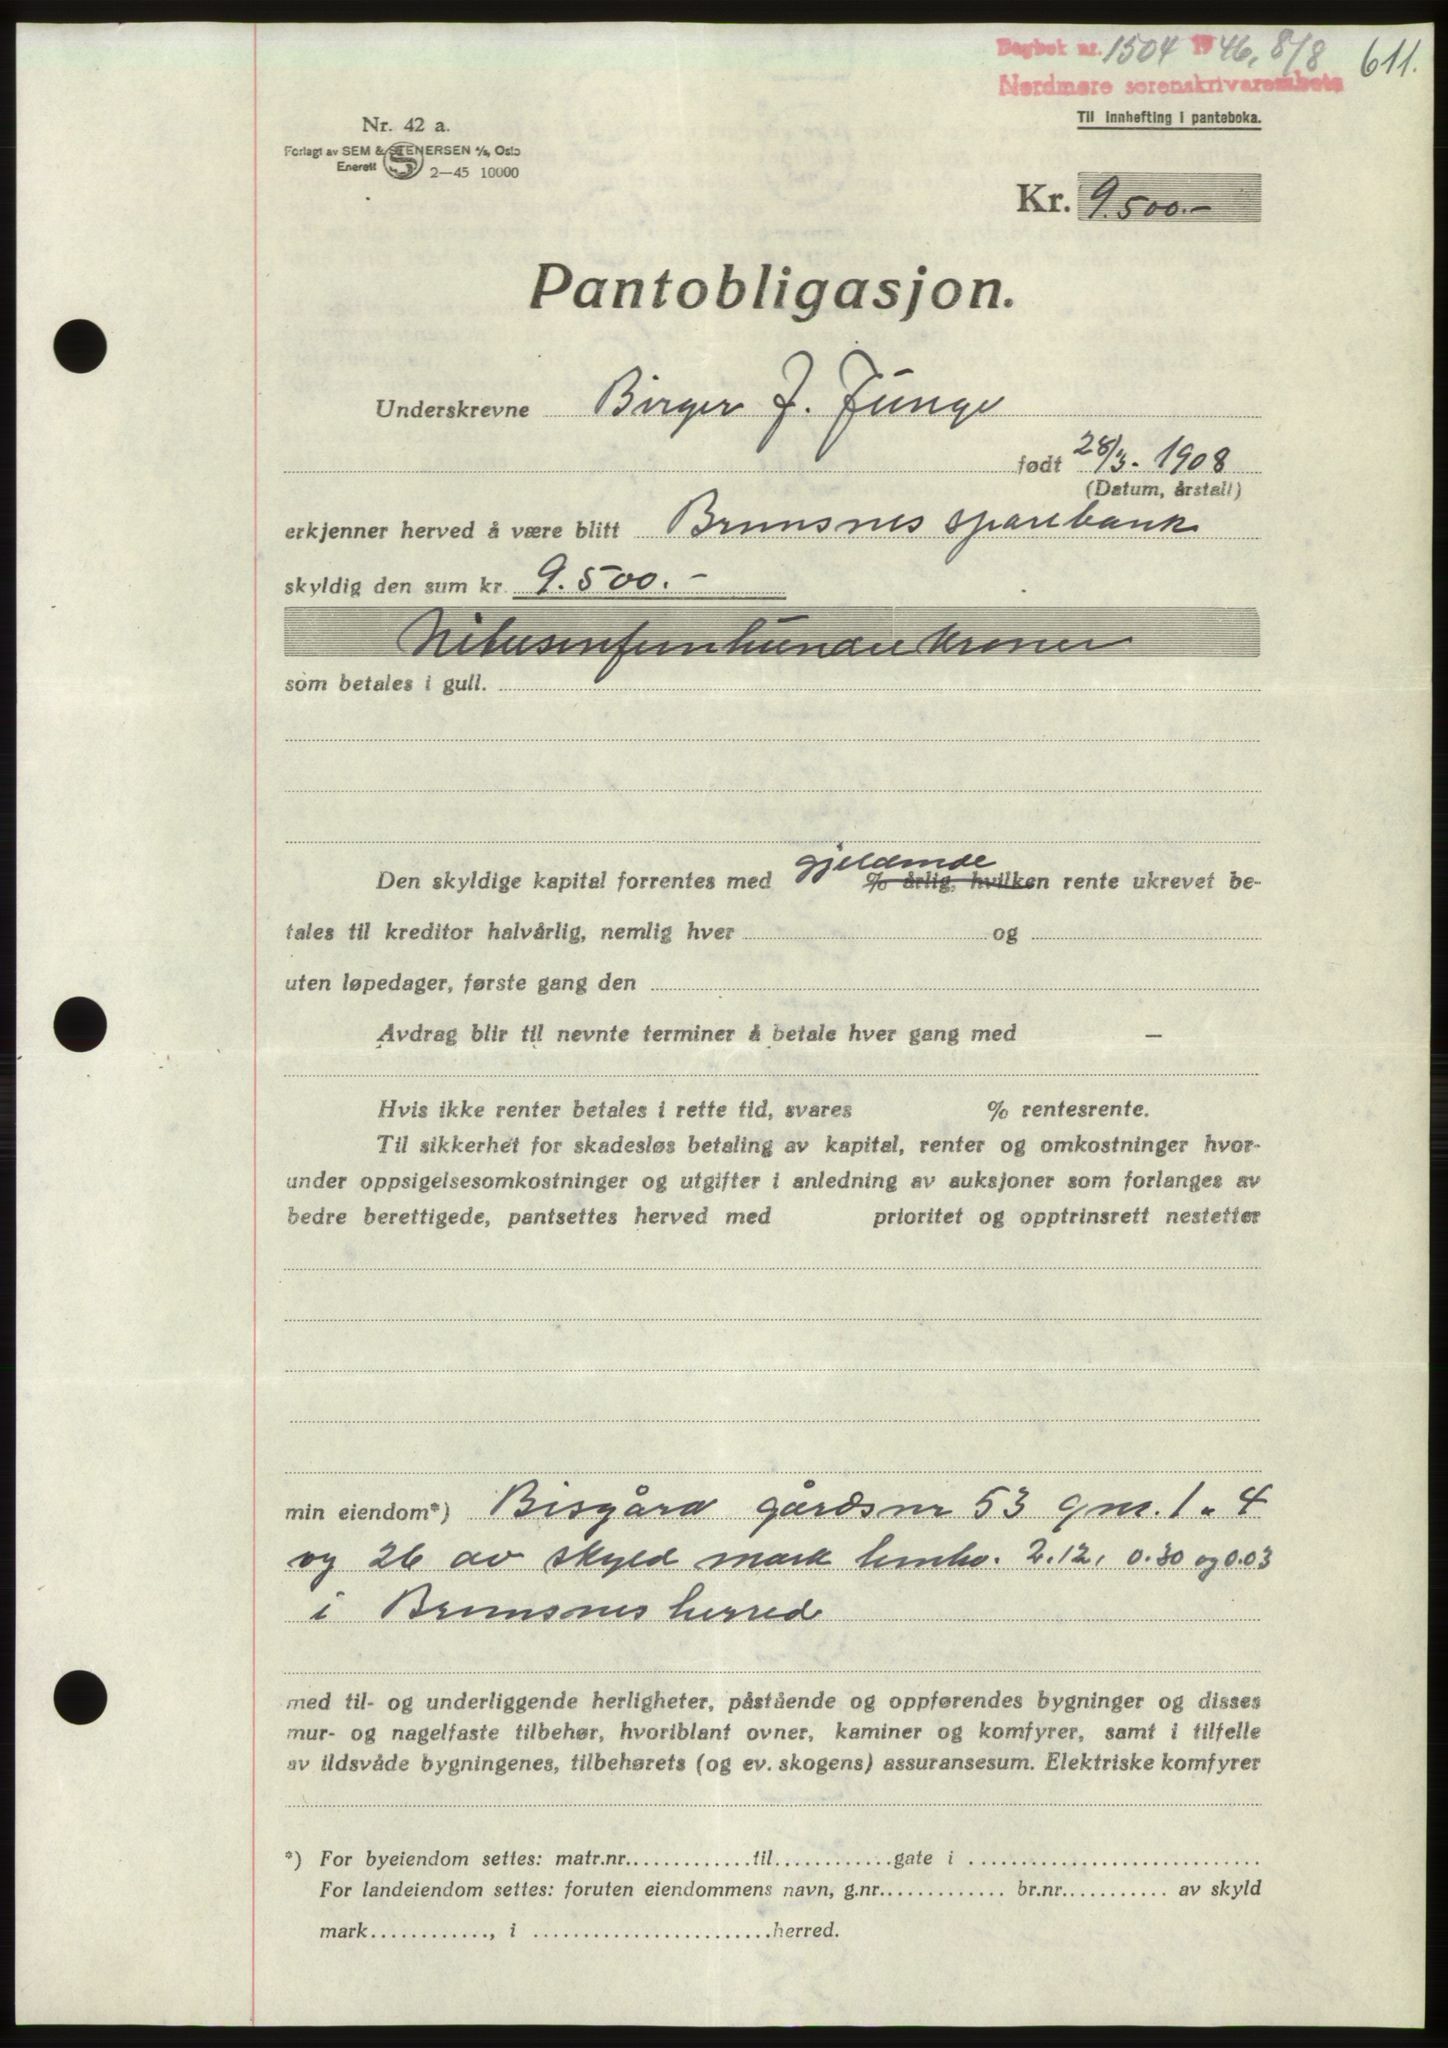 Dagbok nr. 1504 1946, 8/8 611.
Nordmøre sorenskrivarembete
Til innhefting i panteboka.
Nr. 42 a.
Forlagt av SEM & STENERSEN A/S, Oslo
Enerett 2—45 10000
Kr. 9.500.-
Pantobligasjon.
Underskrevne Birger J. Junge
født 28/3. 1908
(Datum, årstall)
erkjenner herved å være blitt Bremsnes sparebank
skyldig den sum kr. 9.500.-
Nitusenfemhundre kroner
som betales i gull.
gjeldende
Den skyldige kapital forrentes med % årlig, hvilken rente ukrevet be-
tales til kreditor halvårlig, nemlig hver og
uten løpedager, første gang den
Avdrag blir til nevnte terminer å betale hver gang med —
Hvis ikke renter betales i rette tid, svares % rentesrente.
Til sikkerhet for skadesløs betaling av kapital, renter og omkostninger hvor-
under oppsigelsesomkostninger og utgifter i anledning av auksjoner som forlanges av
bedre berettigede, pantsettes herved med prioritet og opptrinsrett nestetter
min eiendom*) Bisgård gårdsnr 53 gnr. 1 - 4
og 26 av skyld mark henho. 2.12, 0.30 og 0.03
i Bremsnes herred
med til- og underliggende herligheter, påstående og oppførendes bygninger og disses
mur- og nagelfaste tilbehør, hvoriblant ovner, kaminer og komfyrer, samt i tilfelle
av ildsvåde bygningenes, tilbehørets (og ev. skogens) assuransesum. Elektriske komfyrer
*) For byeiendom settes: matr.nr.............til............gate i ..............................
For landeiendom settes: foruten eiendommens navn, g.nr............. br.nr........... av skyld
mark............, i ........................herred.